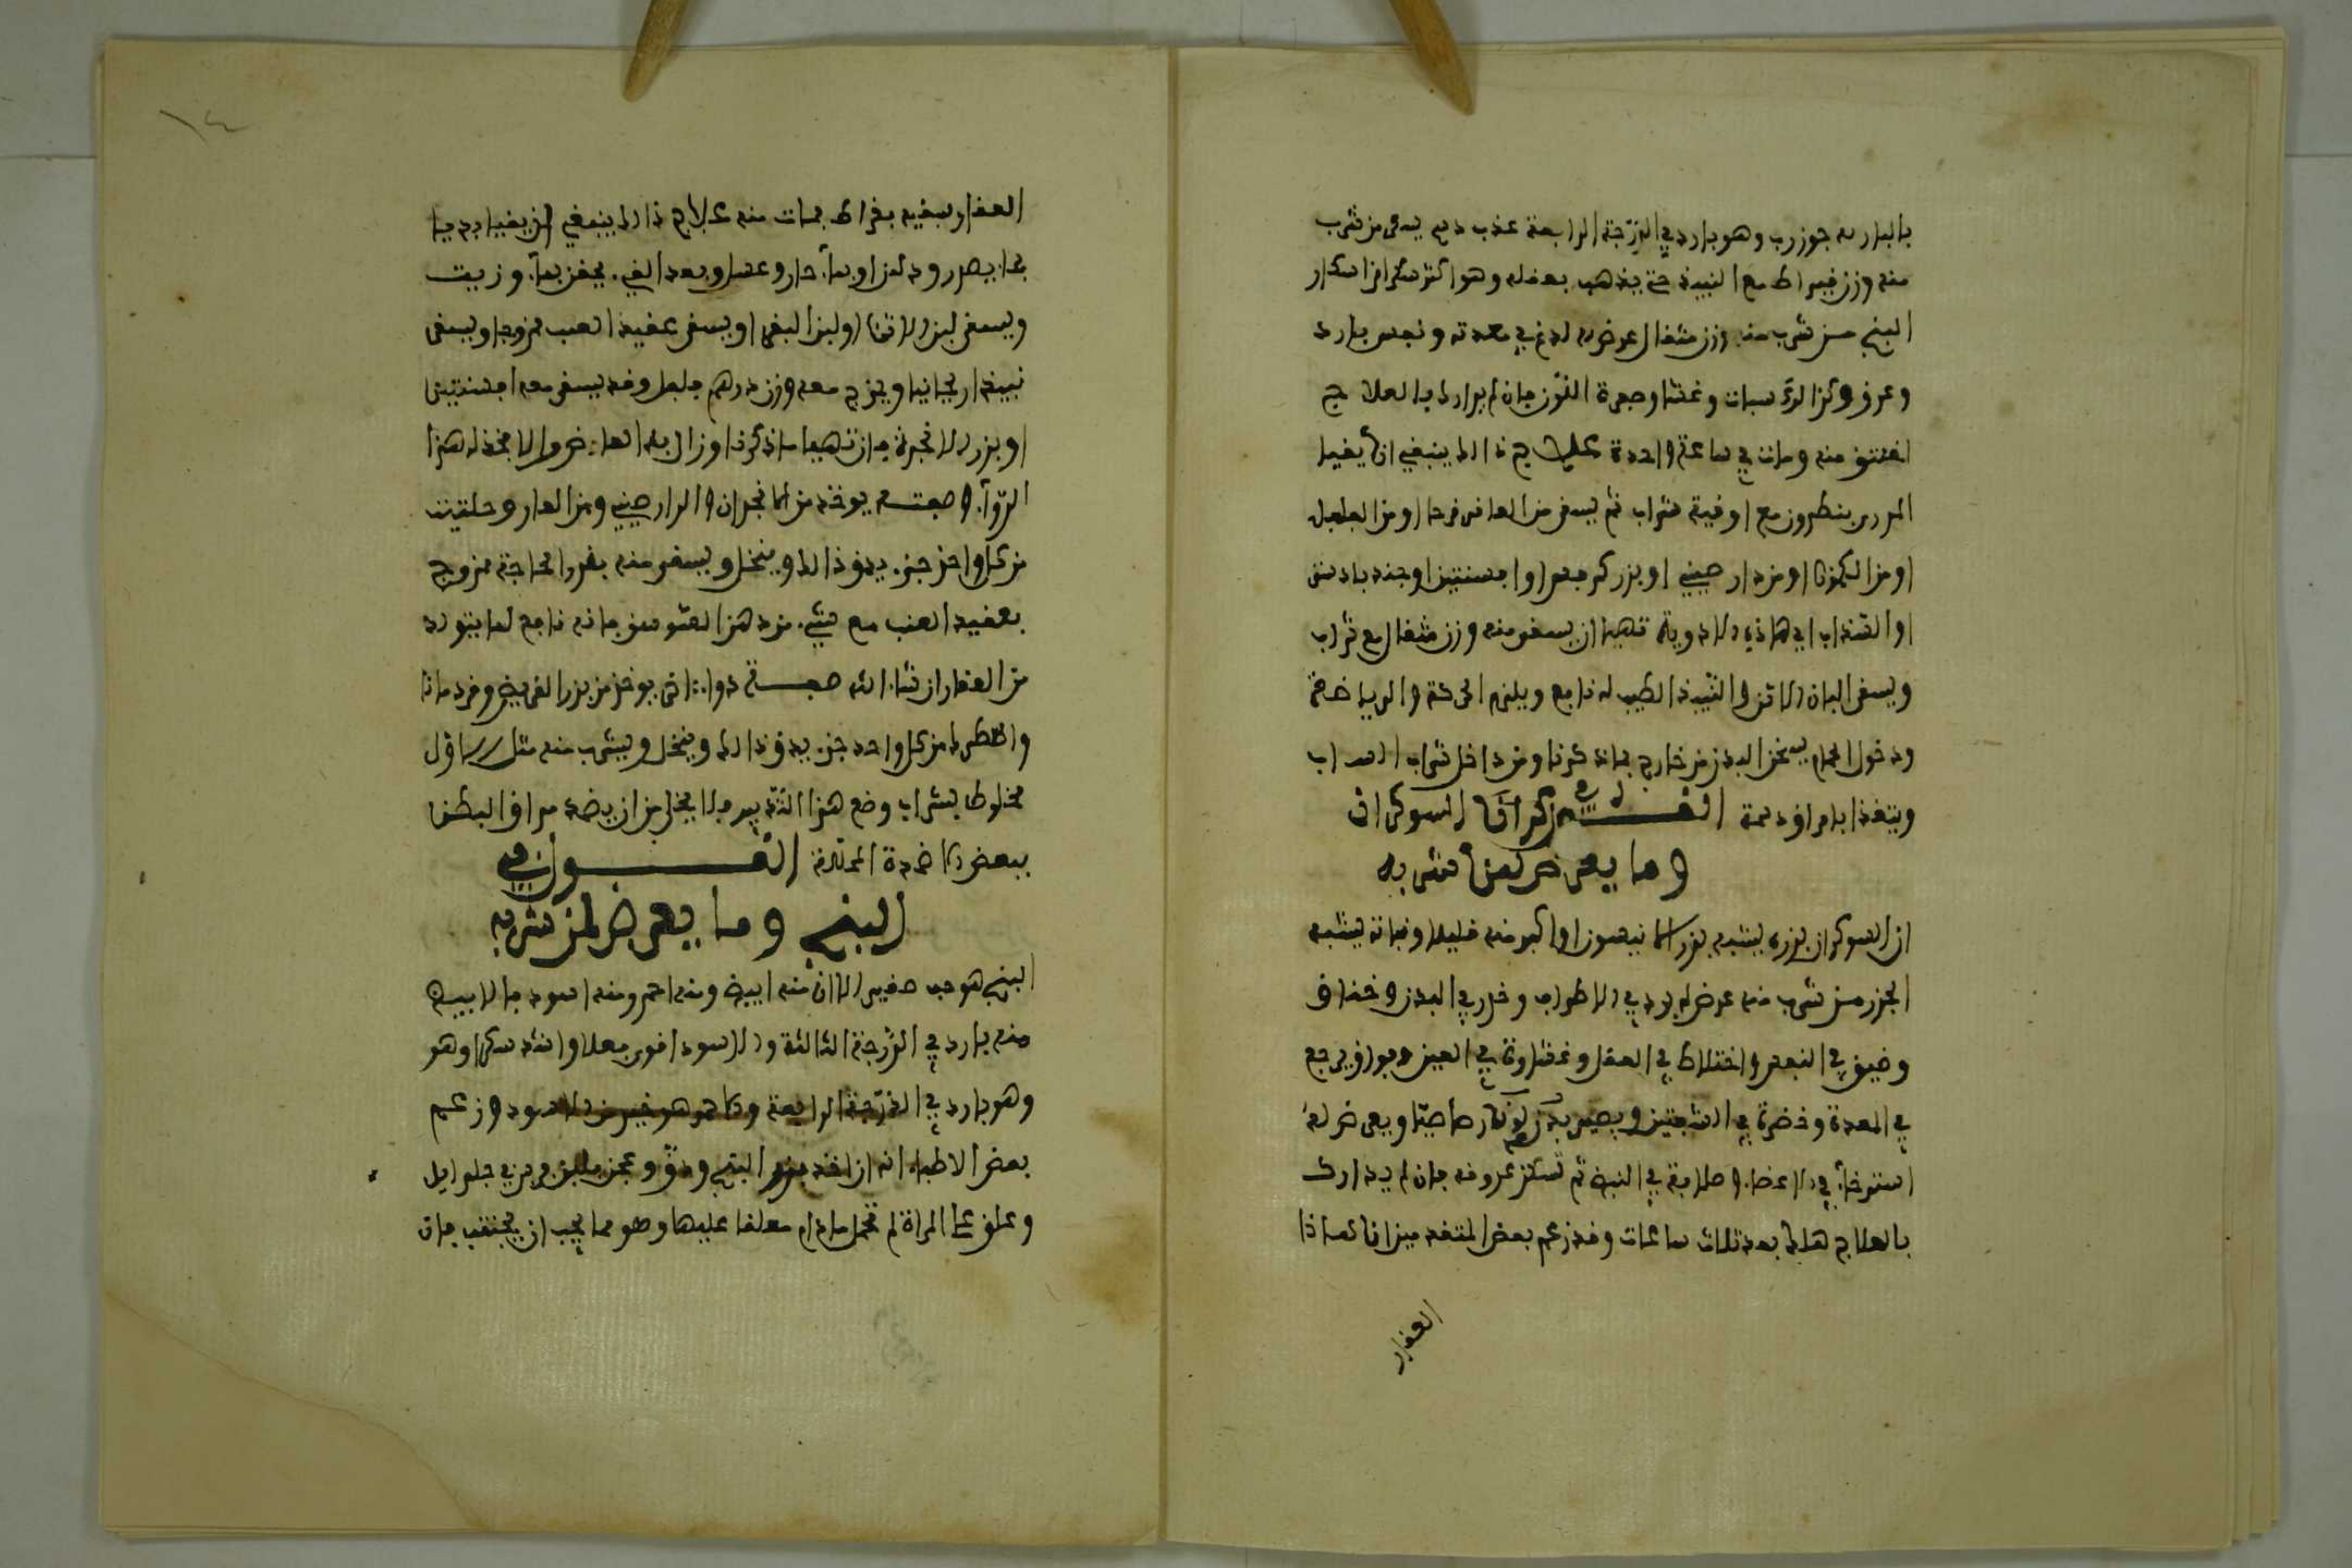 بالبارسه جوزرب وهو بارد في الدرجة الرابعة عذب دسم يسقى من شرب
منه وزن قيراط مع النبيذ حتى يذهب بعقله وهو اكثر سكرا من اسكار
البنج من شرب منه وزن مثقال عرض له لدغ في معدته ونفس بارد
وعرق وكزاز سبات وغشا وصفرة اللون فان لم يدارك بالعلاج
اختنق منه ومات في ساعة واحدة علاج ذالك ينبغي ان يقيا
بنطرون مع اوقية شراب ثم يسقى من العاقرقرحا او من الفلفل
او من الكمون او من دارصيني او بزر كرفس او افسنتين او جندبادستر
او السذاب اي هاذه الادوية تهيا ان يسقى منه وزن مثقال مع شراب
ويسقى البان الاتن والنبيذ الطيب له نافع ويلزم الحركة والرياضة
ودخول الحمام يسخن البدن من خارج بما ذكرنا ومن داخل شراب
ويتغذا بامراق دسمة القول في السوكران
وما يعرض لمن شربه
ان السوكران بزره يشبه بزر الانيسون او اكبر منه قليلا ونباته يشبه
الجزر من شرب منه عرض له برد في الاطراف وخدر في البدن وخناق
وضيق في النفس واختلاط في العقل وغشاوة في العين وفواق يرجع
في المعدة وخضرة في الشفتين ويصير بدن لونه رصاصيا ويعرض له
استرخاء في الاعضاء وصلابة في النبض ثم تسكن عروقه فان لم يدارك
بالعلاج هلك بعد ثلاث ساعات وقد زعم بعض المتقدمين انا لهاذا
العقار
١٤
العقار بسقيه بقراط فمات منه علاج ذالك ينبغي ان يقيا
بما حار وعسل وبعد القيء يحقن بماء وزيت
ويسقى لبن الاتن او لبن البقر او يسقى عقيد العنب ممزوجا ويسقى
نبيذا ريحانيا ويمزج معه وزن درهم فلفل وقد يسقى معه افسنتين
او بزر الانجرة فان تهيا ما ذكرنا وزال به العارض والا فخذ له هذا
الدواء وصفته يوخذ من الانجدان والدارصيني ومن الغار وحلتيت
من كل واحد جزء يدق ذالك وينخل ويسقى منه بقدر الحاجة ممزوج
بعقيد العنب مع شيء من دهن السوسن فانه نافع لما يتولد
من العقار ان شاء الله صفة دواء اخر يوخذ من بزر القريض وقردمانا
من كل واحد جزء يدق ذالك وينخل ويشرب منه مثل الاول
مخلوطا بشراب ومع هذا التدبير فلا يخل من ان يضمد مراق البطن
ببعض الاضمدة المحللة القول في
البنج وما يعرض لمن شربه
البنج هو حب صغير الا ان منه ابيض ومنه احمر ومنه اسود فالابيض
منه بارد في الدرجة الثالثة والاسود اقوى فعلا واشد سكرا وهو
وهو بارد في الدرجة الرابعة والاحمر هو خير من الاسود وزعم
بعض الاطباء انه ان اخذ بزر البنج ودق وعجن بلبن وصر في جلد ايل
وعلق على المراة لم تحمل ما دام معلقا عليها وهو مما يجب ان يجتنب فان